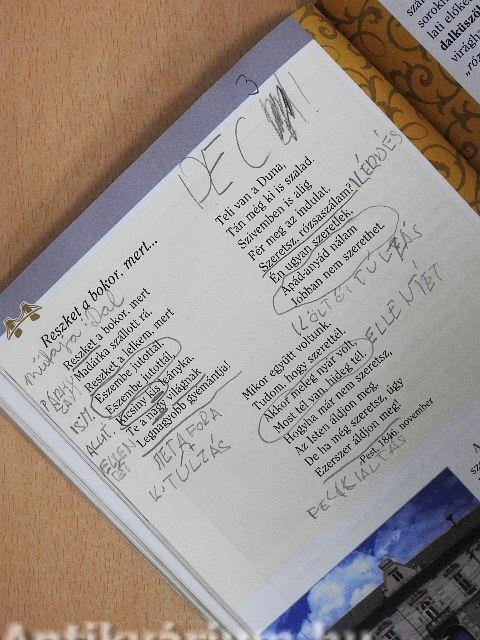 Reszket a bokor, mert...
műfaja: Dal
Reszket a bokor, mert
Madárka szálloti rá.
Reszket a lelkem, mert
Eszembe jutottál,
Eszembe jutottál,
Kicsiny kis leányka,
Te a nagy világnak
Legnagyobb gyémántja!
ELLEN
TÉT
METAFORA
TÚLZÁS
3
Teli van a Duna,
Tán még ki is szalad.
Szivemben is alig
Fér meg az indulat.
Szeretsz, rózsaszálam?
KÉRDÉS
Én ugyan szeretlek,
Apád-anyád nálam
Jobban nem szerethet.
KÖLTŐI TÚLZÁS
Mikor együtt voltunk,
Tudom, hogy szerettél.
Akkor meleg nyár volt,
Most tél van, hideg tél.
ELLENTÉT
Hogyha már nem szeretsz,
Az Isten áldjon meg,
De ha még szeretsz, úgy
Ezerszer áldjon meg!
Pest, 1846. november
FELKIÁLTÁS
Antikvárium.hu